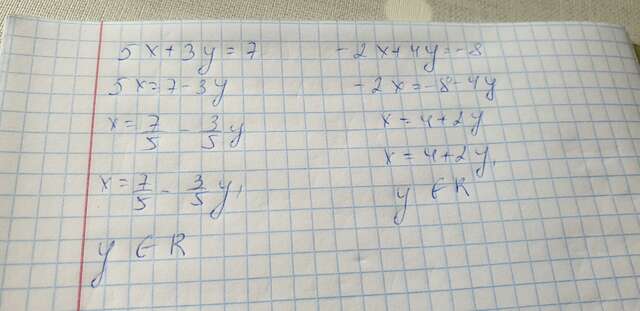 5x+3y=7
5x=7-3y
x=7/5 - 3/5 y
x=7/5 - 3/5 y,
y ∈ R
-2x+4y=-8
-2x=-8-4y
x=4+2y
x=4+2y,
y ∈ R